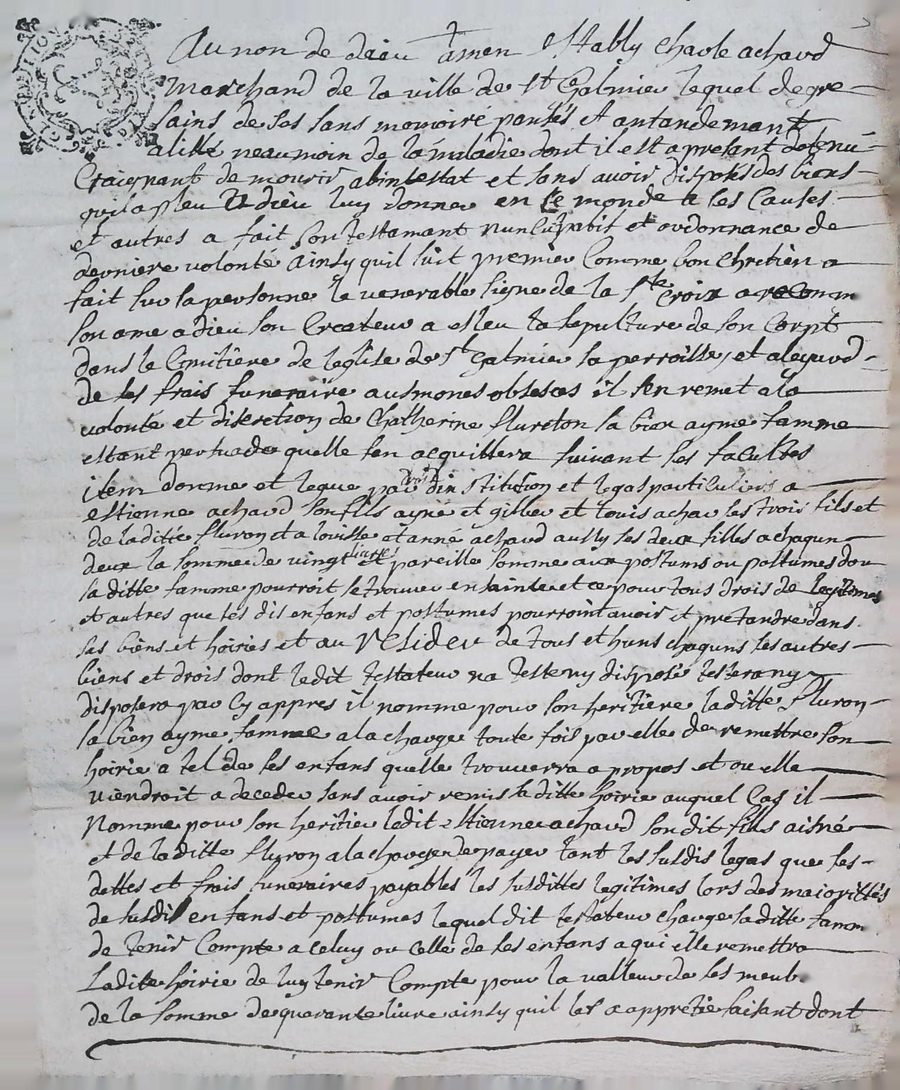 Au non de dieu amen Estably Charle achard
Marchand de la ville de St Galmier lequel de gre
sains de ses sans memoire pansés et antandemant
alitté neaumoin de la maladie dont il est apresant detenu
Craignant de mourir abintestat et sans avoir disposés des biens
quil a pleu a dieu luy donner en ce monde a ses Causes
et autres a fait son testamant nuncupatif et ordonnance de
derniere volonté ainsy quil suit premier Comme bon Chretien a
fait sur sa personne le venerable signe de la Ste Croix a recomm
son ame a dieu son Createur a esleu sa sepulture de son Corpt
dans le Cimitiere de leglise de St Galmier sa perroisse, et alegard
de ses frais funeraire ausmones obseces il sen remet a la
volonté et discretion de Chatherine flureton sa bien ayme famme
estant persuadé quelle sen acquittera suivant ses facultés
item donne et legue par droit dinstitution et legas particuliers a
estienne achard son fils ayné et gilber et louis achar ses trois fils et
de la ditte fluron et a louisse et anne achard aussy ses deux filles a chaqun
deux la somme de vingt livres et pareille somme aux postums ou postumes dou
sa ditte famme pourroit se trouver ensainte et ce pour tous drois de legitimes
et autres que ses dis enfans et postumes pourroint avoir et pretandre dans
ses biens et hoiries et au residu de tous et huns chaquns ses autres
biens et drois dont ledit testateur na testé ny disposé testera ny
disposera par cy appres il nomme pour son heritiere laditte fluron
sa bien ayme famme a la charge toute fois par elle de remettre son
hoirie a tel de ses enfans quelle trouverra a propos et ou elle
viendroit a deceder sans avoir remis sa ditte hoirie auquel Cas il
Nomme pour son heritier ledit estienne achard son dit fils aisné
et de laditte fluron a la charge de payer tant les susdis legas que ses
dettes et frais funeraires payables les susdittes legitimes lors des majorittés
de susdis enfans et postumes lequel dit testateur charge sa ditte famm
de tenir Compte a Celuy ou Celle de ses enfans a qui elle remettra
Ladite hoirie de luy tenir Compte pour la valleur de ses meub
de la somme de quarante livre ainsy quil les a appretié faisant dont